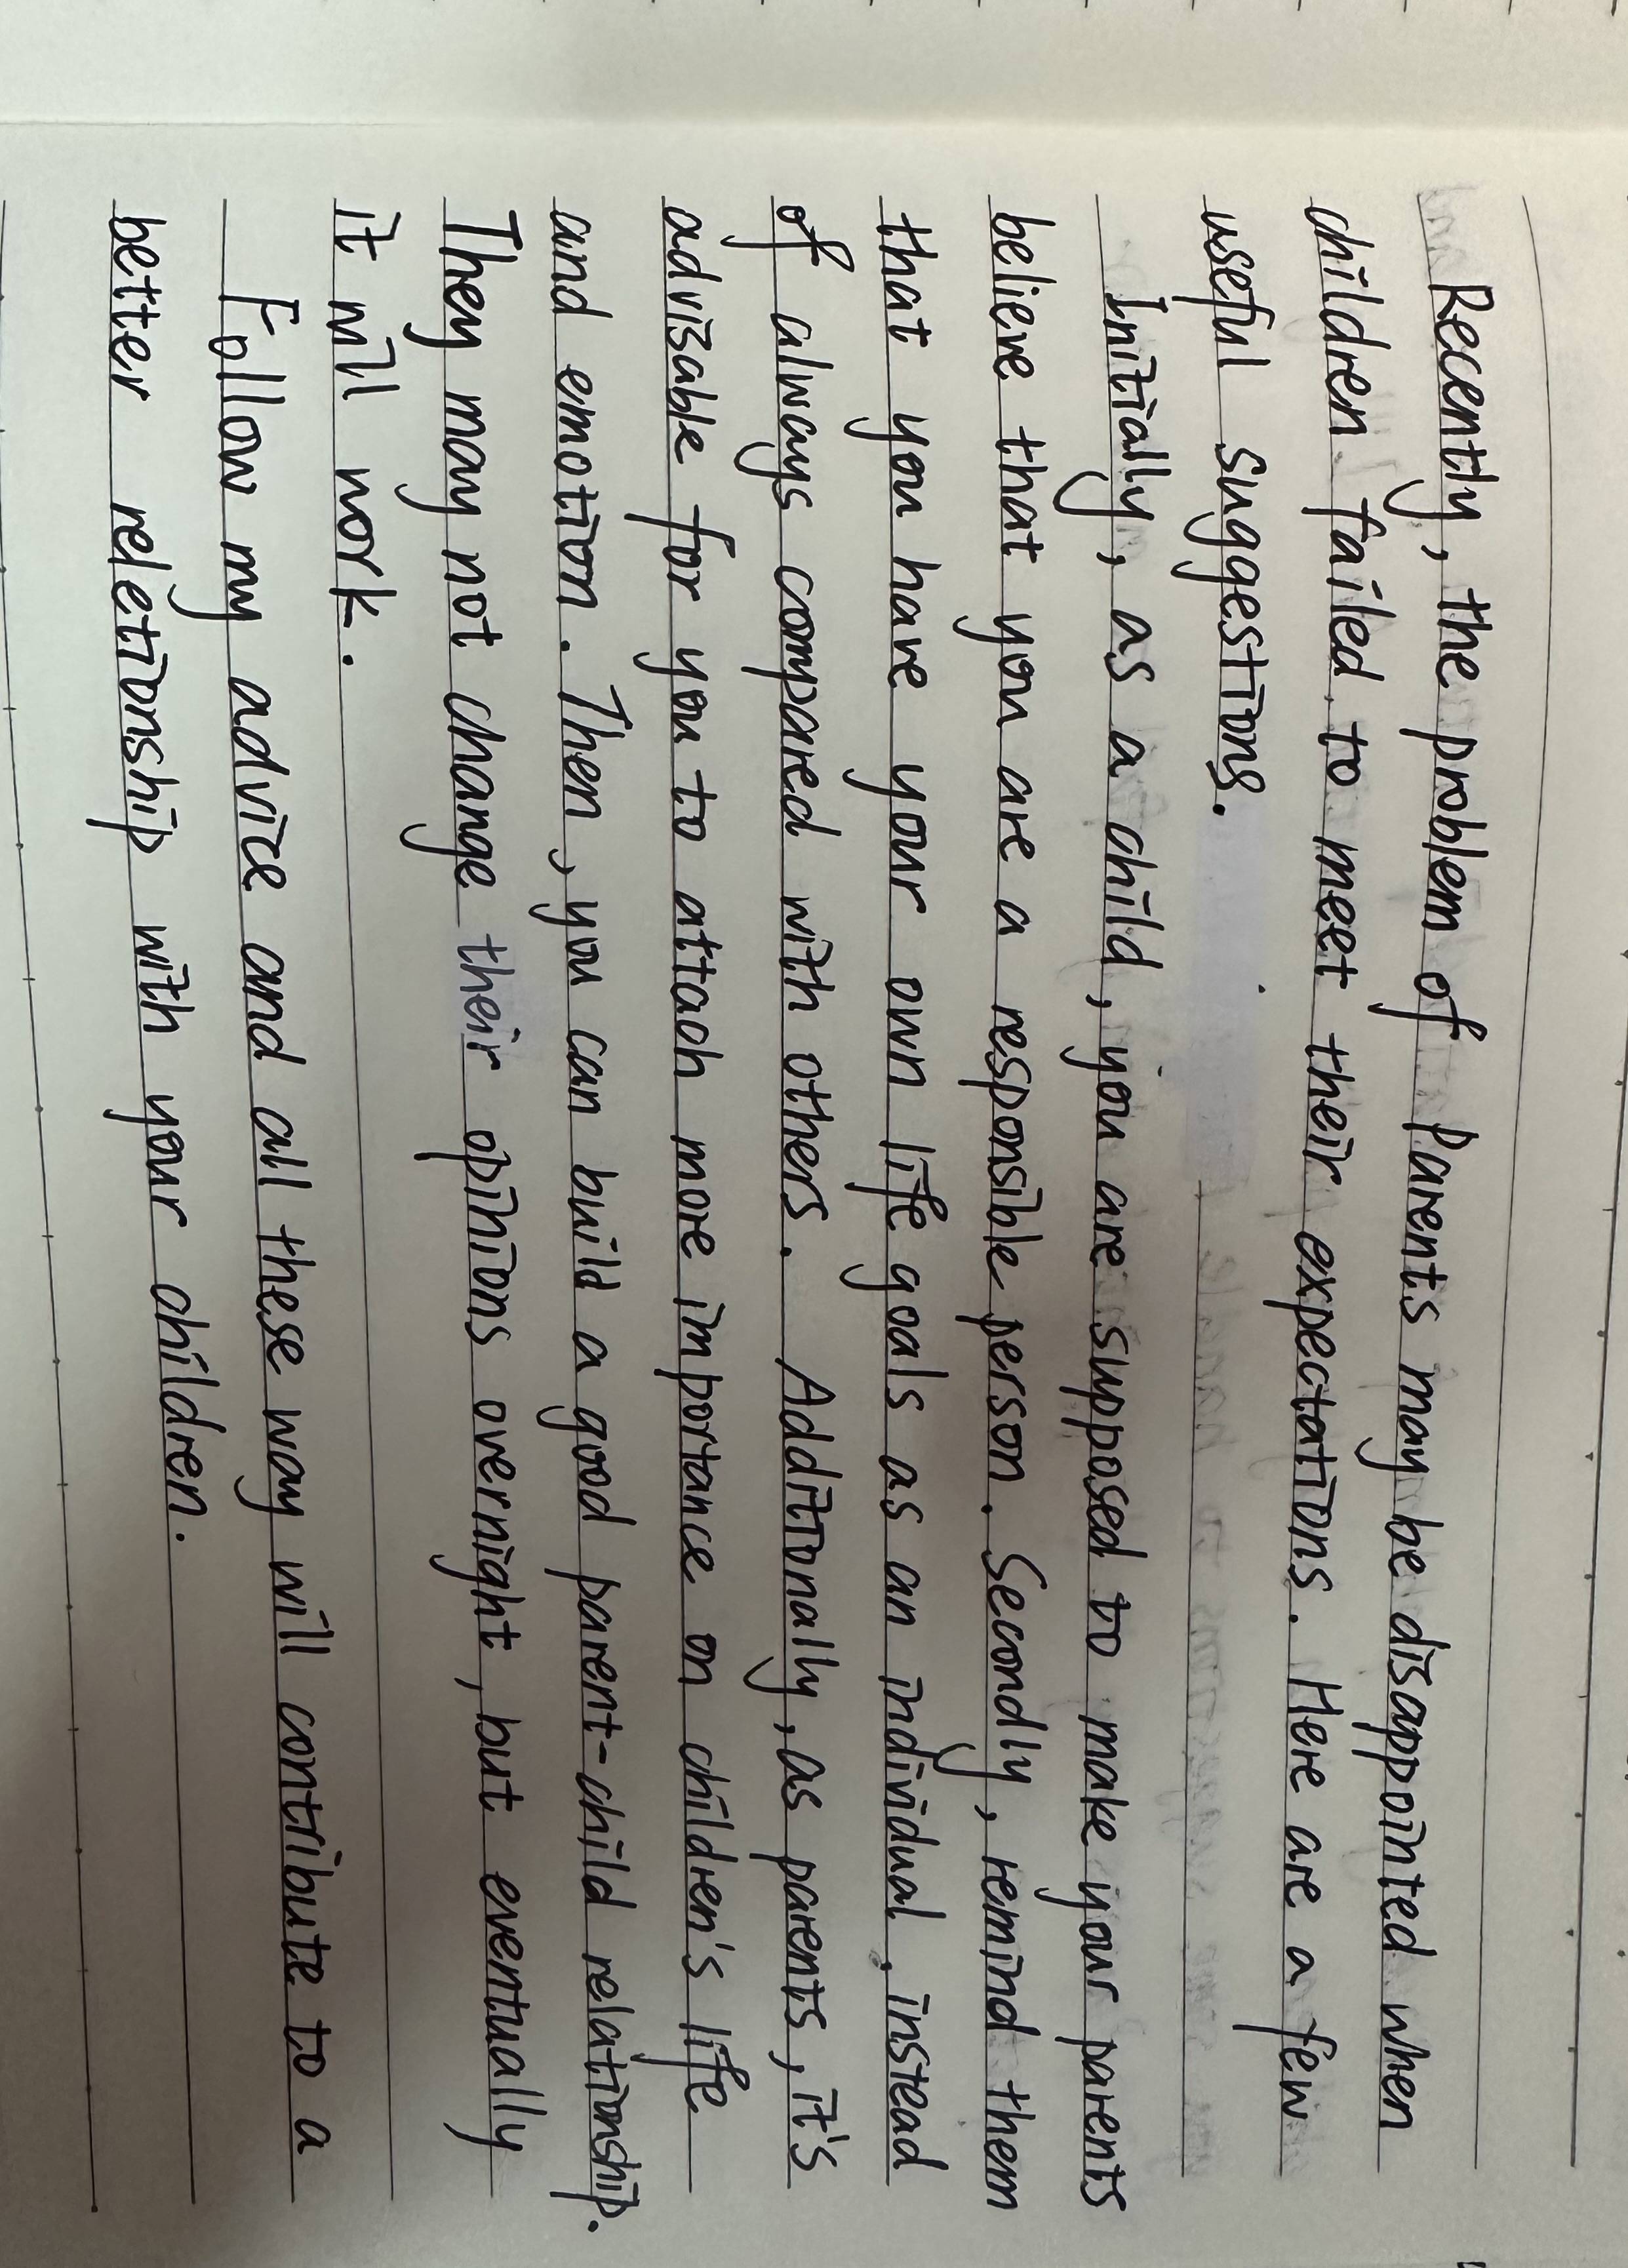 Recently, the problem of parents may be disappointed when
children failed to meet their expectations. Here are a few
useful suggestions.
Initially, as a child, you are supposed to make your parents
believe that you are a responsible person. Secondly, remind them
that you have your own life goals as an individual, instead
of always compared with others. Additionally, as parents, it's
advisable for you to attach more importance on children's life
and emotion. Then, you can build a good parent-child relationship.
They may not change their opinions overnight, but eventually
it will work.
Follow my advice and all these way will contribute to a
better reletionship with your children.